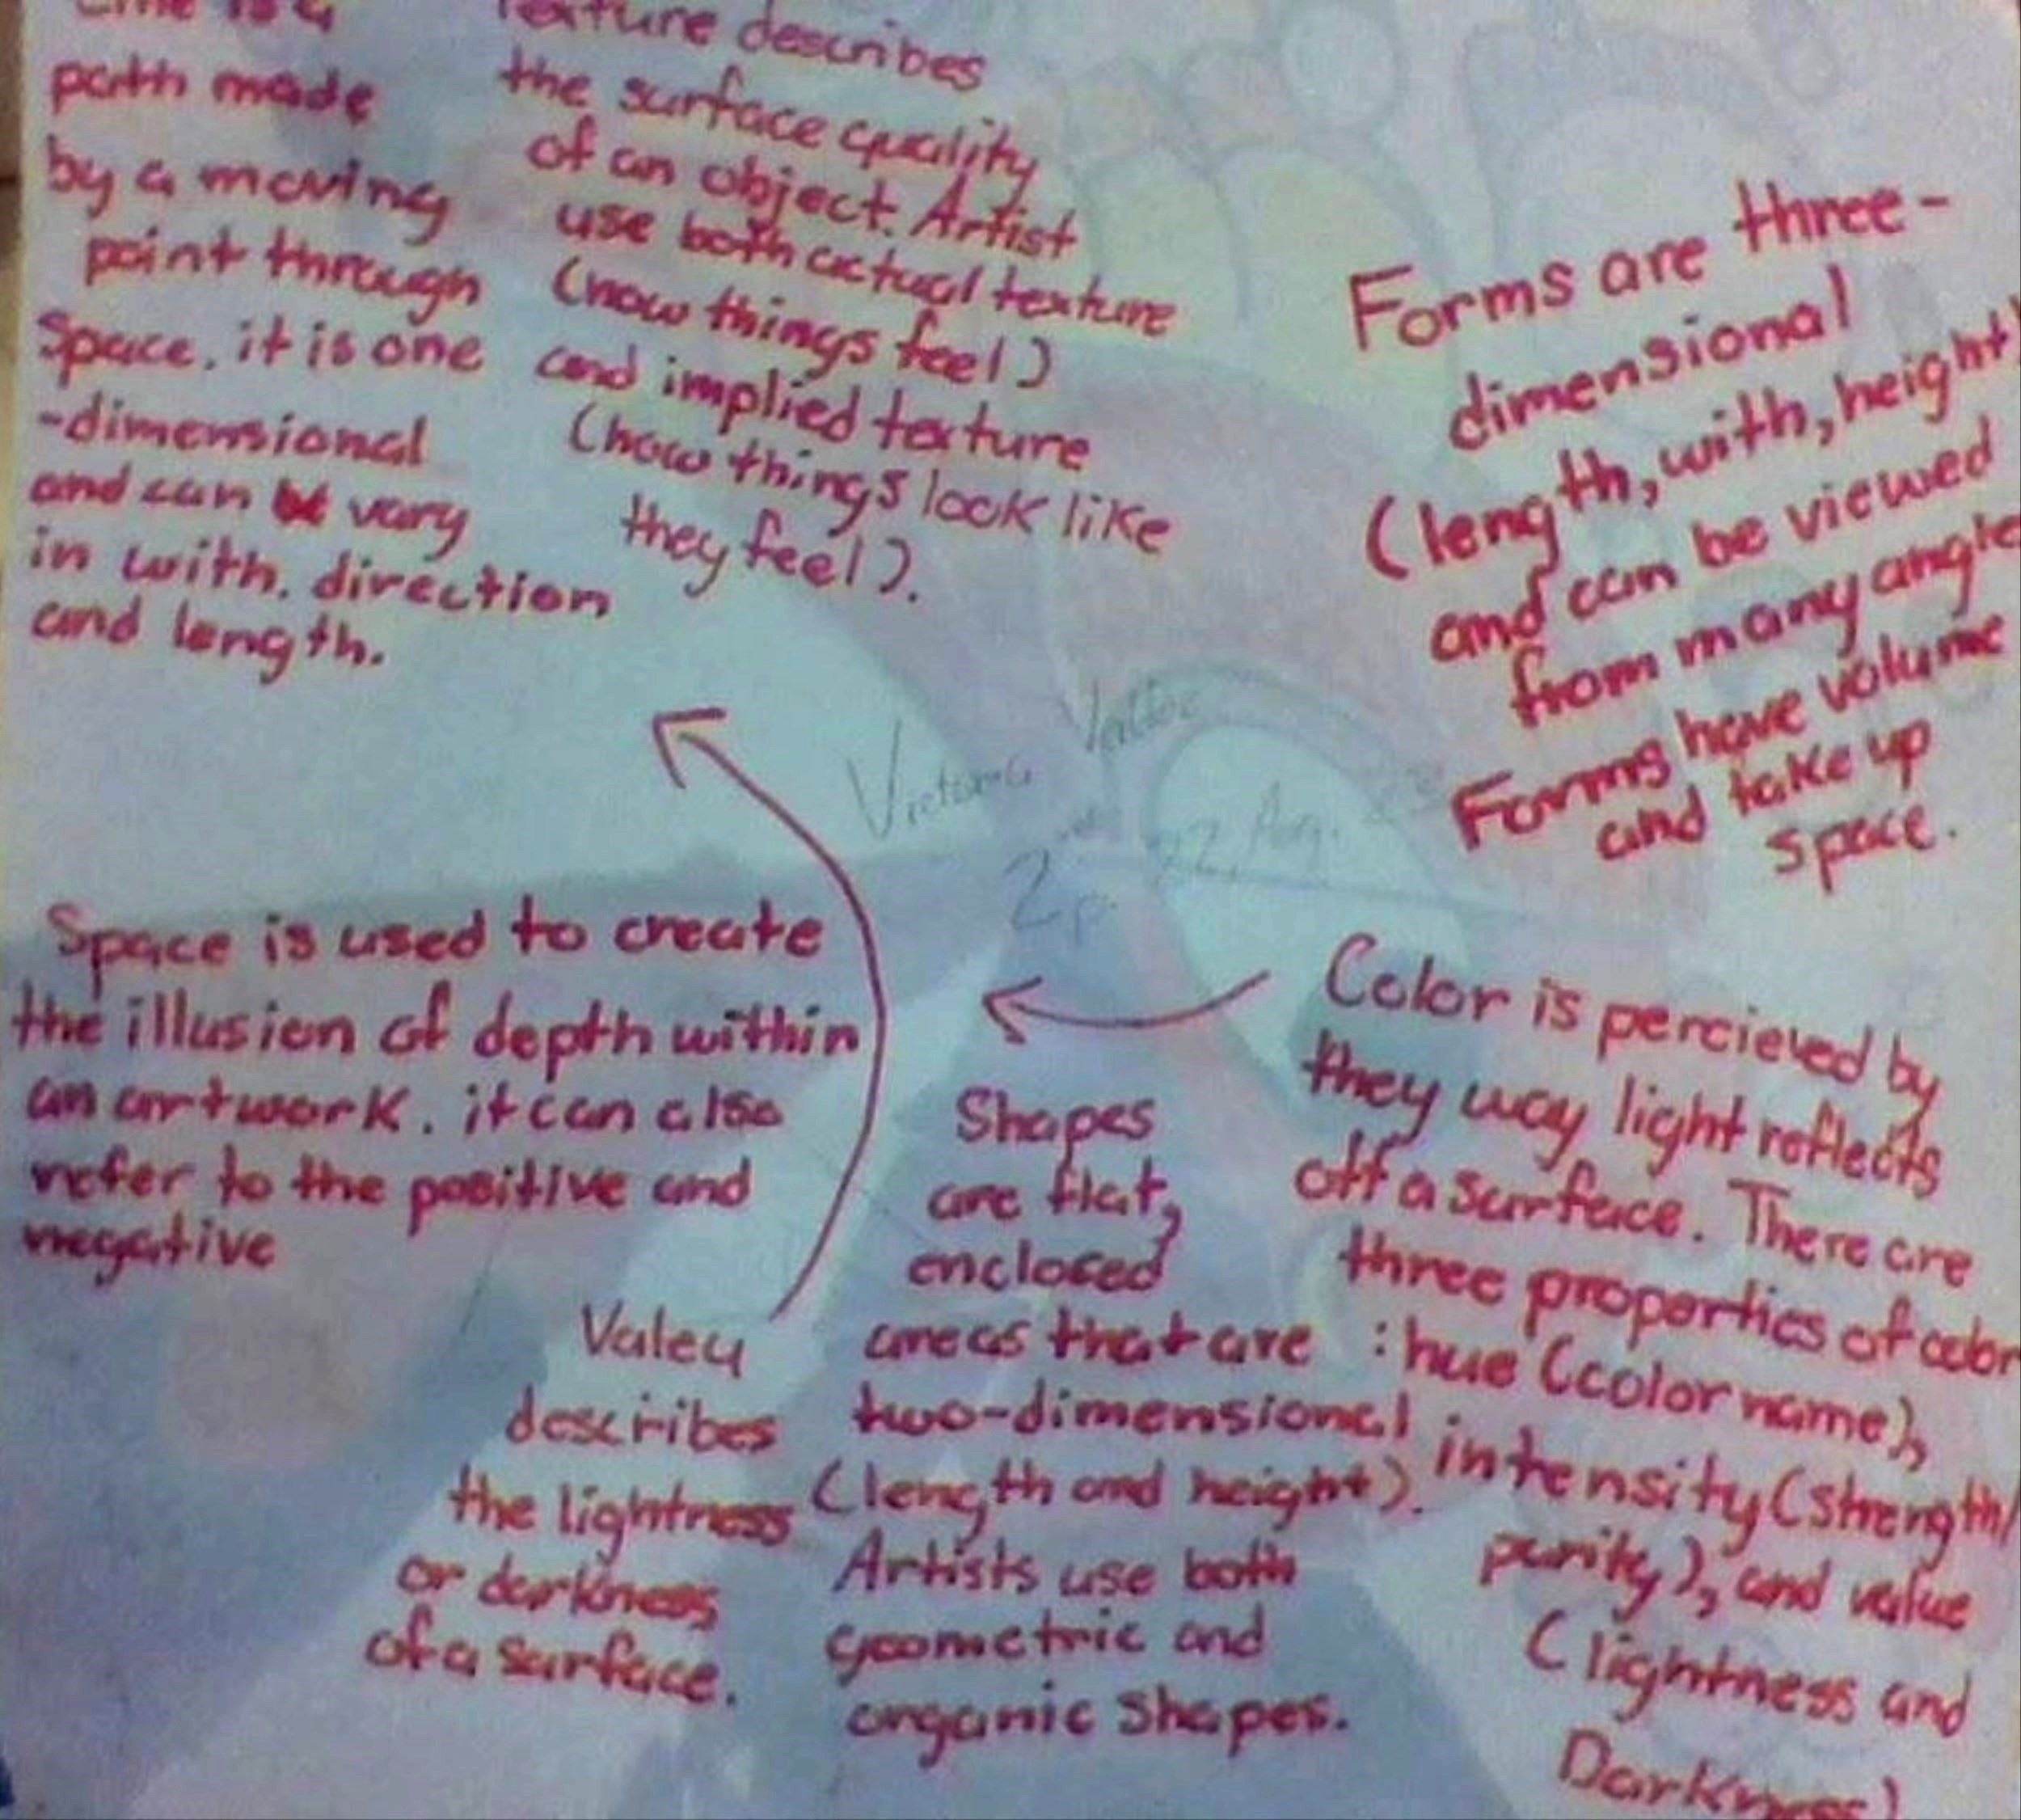 Line is a
path made
by a moving
point through
space. it is one
-dimensional
and can be vary
in with. direction
and length.
Texture describes
the surface quality
of an object. Artist
use both actual texture
(how things feel)
and implied texture
(how things look like
they feel).
Forms are three-
dimensional
(length, with, height)
and can be viewed
from many angles
Forms have volume
and take up
space.
Victoria
22 Aug.
2p.
Space is used to create
the illusion of depth within
an artwork. it can also
refer to the positive and
negative
Valeu
describes
the lightness
or darkness
of a surface.
Shapes
are flat,
enclosed
areas that are
two-dimensional
(length and height).
Artists use both
geometric and
organic shapes.
Color is percieved by
they way light reflects
off a surface. There are
three properties of color
: hue (color name),
intensity (strength/
purity), and value
(lightness and
Darkness)